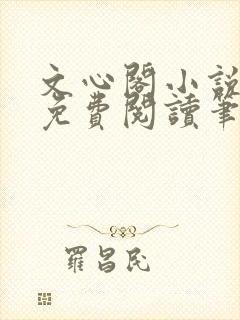 文心閣小說
免費閱讀筆
羅昌民